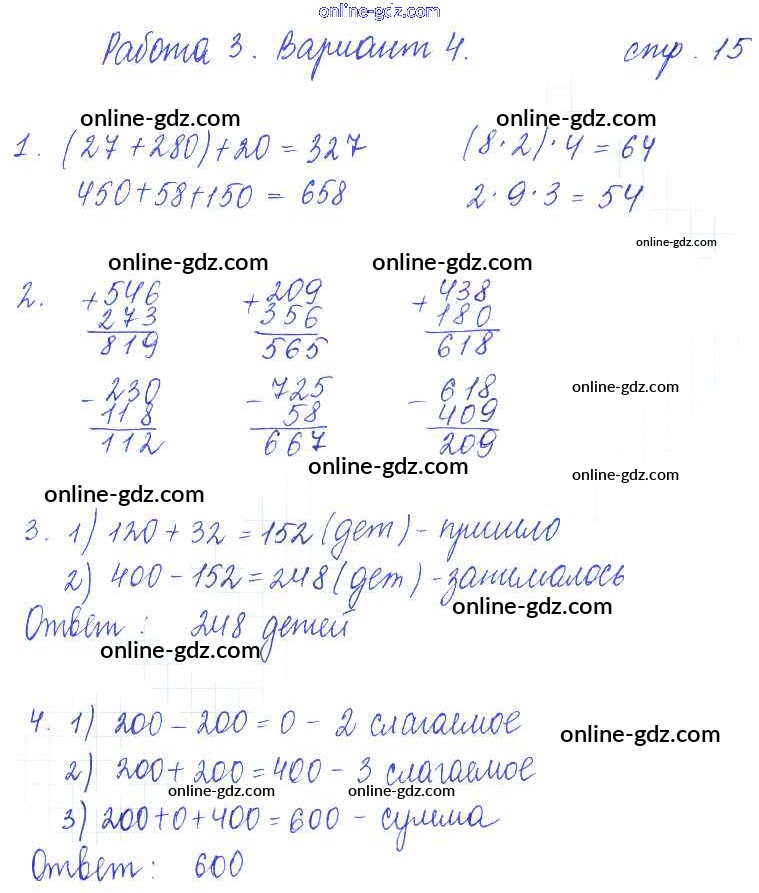 online-gdz.com
Работа 3. Вариант 4. стр. 15
online-gdz.com online-gdz.com
1. (27 + 280) + 20 = 327 (8 · 2) · 4 = 64
450 + 58 + 150 = 658 2 · 9 · 3 = 54
online-gdz.com
online-gdz.com online-gdz.com
2. + 546 + 209 + 438
273 356 180
819 565 618
- 230 - 725 - 618 online-gdz.com
118 58 409
112 667 209
online-gdz.com online-gdz.com
online-gdz.com
3. 1) 120 + 32 = 152 (дет) - пришло
2) 400 - 152 = 248 (дет) - занималось
online-gdz.com
Ответ: 248 детей
online-gdz.com
4. 1) 200 - 200 = 0 - 2 слагаемое
online-gdz.com
2) 200 + 200 = 400 - 3 слагаемое
online-gdz.com online-gdz.com
3) 200 + 0 + 400 = 600 - сумма
Ответ: 600